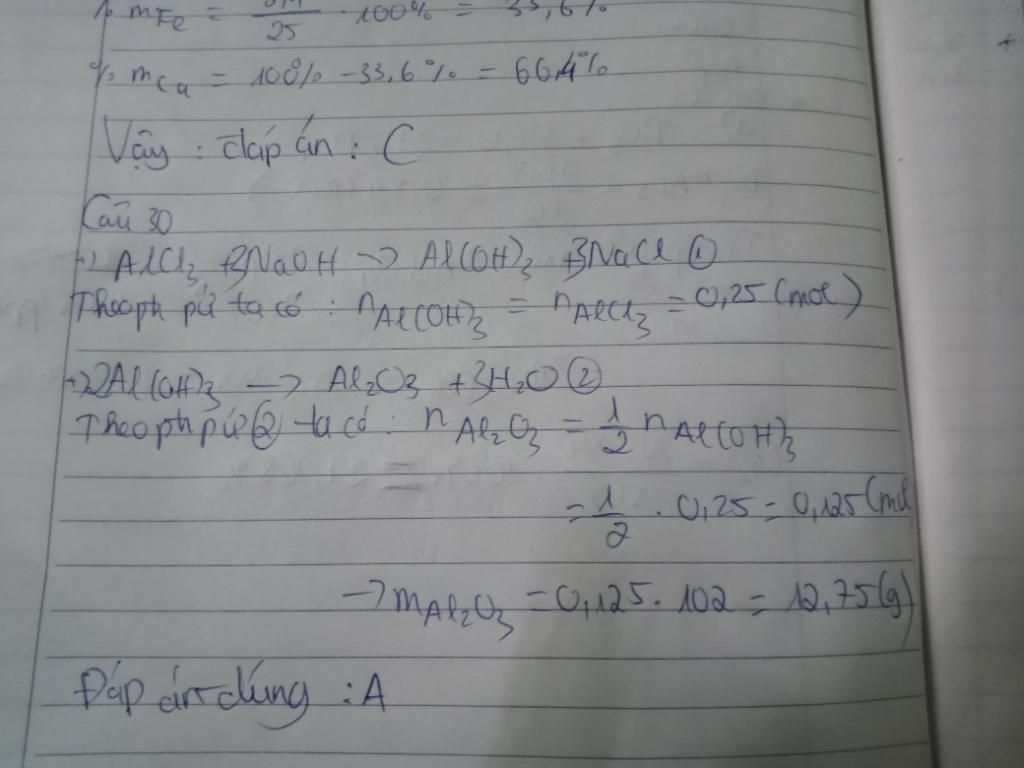 % mFe = 8,4/25 . 100% = 33,6%
% mCu = 100% - 33,6% = 66,4%
Vậy : đáp án : C
Câu 30
+) AlCl3 + 3NaOH -> Al(OH)3 + 3NaCl ①
Theo ph pứ ta có : nAl(OH)3 = nAlCl3 = 0,25 (mol)
+) 2Al(OH)3 -> Al2O3 + 3H2O ②
Theo ph pứ ② ta có : nAl2O3 = 1/2 nAl(OH)3
= 1/2 . 0,25 = 0,125 (mol
-> mAl2O3 = 0,125 . 102 = 12,75 (g)
Đáp án đúng : A